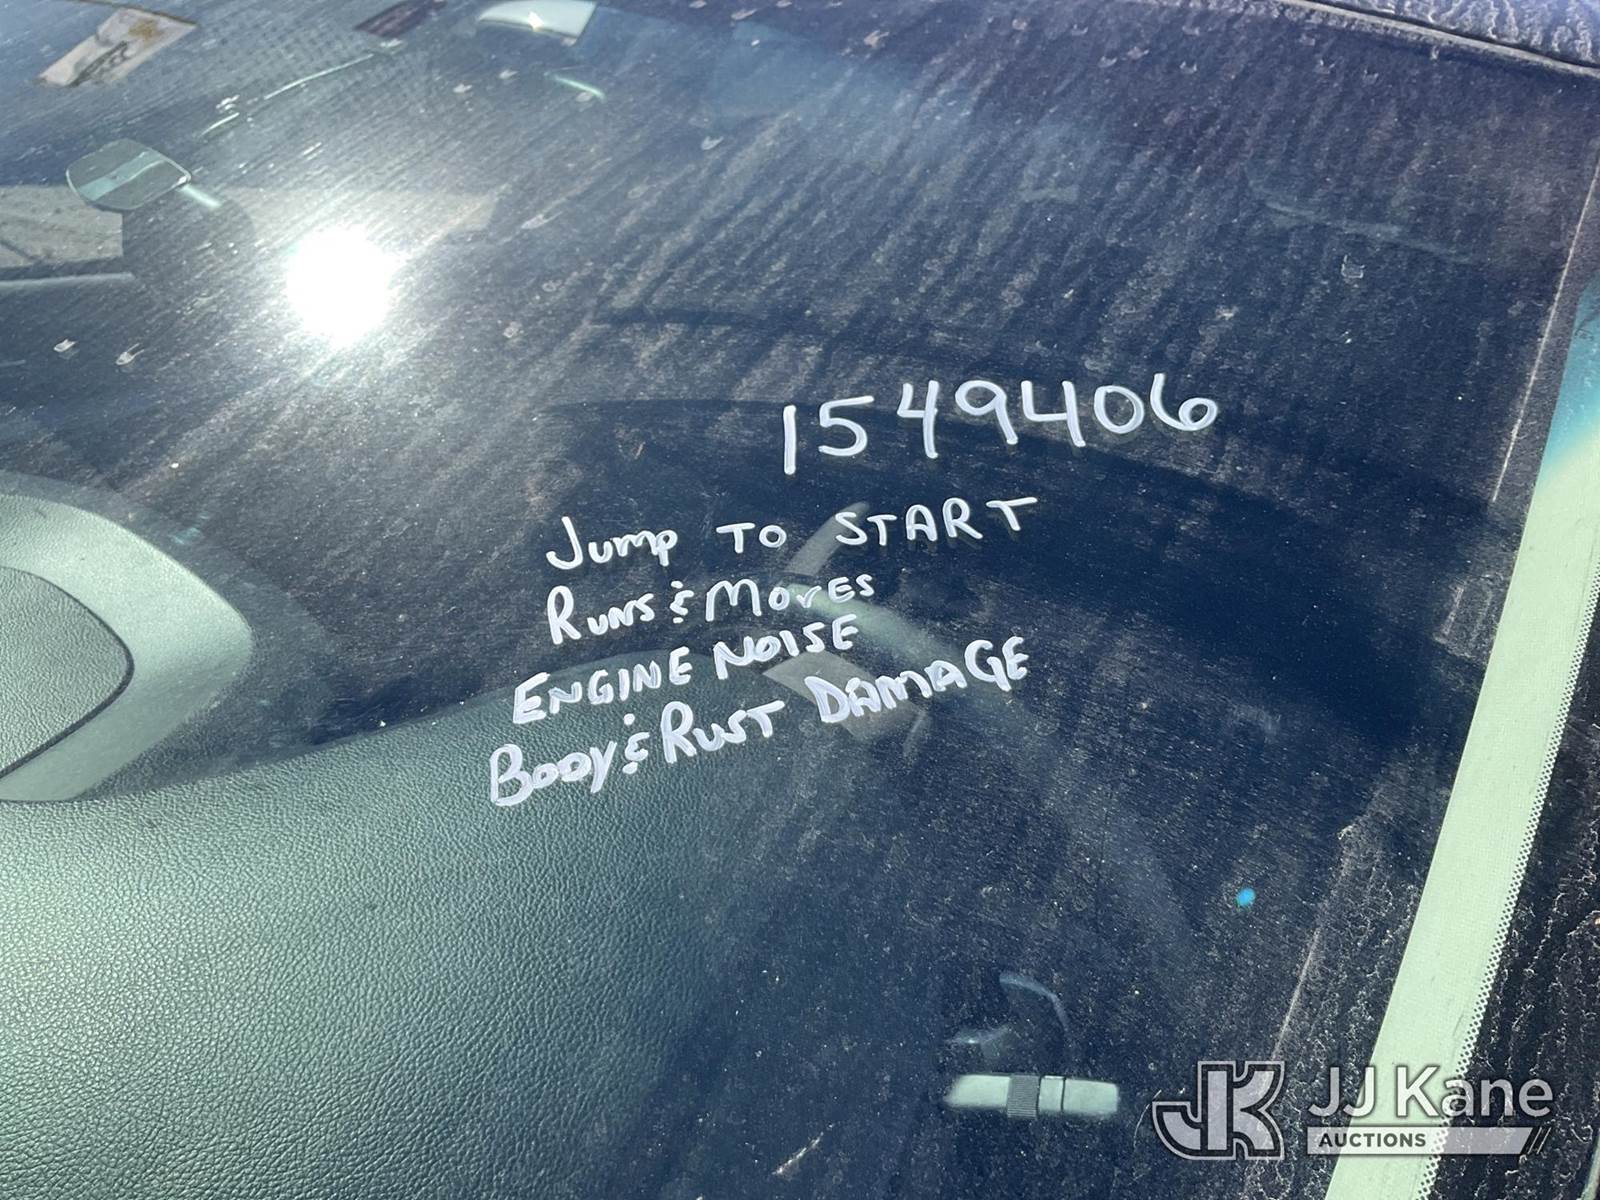 1549406
Jump TO START
RUNS & MOVES
ENGINE NOISE
BODY & RUST DAMAGE
JK JJ Kane
AUCTIONS